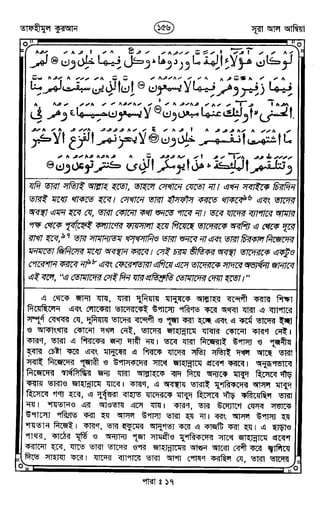 তাফহীমুল কুরআন
১৫৬
সূরা আল আম্বিয়া
لَوْ كَانَ هٰٓؤُلَآءِ اٰلِهَةً مَّا وَرَدُوْهَا ۖ وَكُلٌّ فِيْهَا خٰلِدُوْنَ ۞ لَهُمْ
فِيْهَا زَفِيْرٌ وَّهُمْ فِيْهَا لَا يَسْمَعُوْنَ ۞ اِنَّ الَّذِيْنَ سَبَقَتْ لَهُمْ مِّنَّا
الْحُسْنٰٓى ۙ اُولٰٓئِكَ عَنْهَا مُبْعَدُوْنَ ۞ لَا يَسْمَعُوْنَ حَسِيْسَهَا ۚ وَهُمْ فِيْ
مَا اشْتَهَتْ اَنْفُسُهُمْ خٰلِدُوْنَ ۞ لَا يَحْزُنُهُمُ الْفَزَعُ الْاَكْبَرُ
وَتَتَلَقّٰىهُمُ الْمَلٰٓئِكَةُ ۖ هٰذَا يَوْمُكُمُ الَّذِيْ كُنْتُمْ تُوْعَدُوْنَ ۞
যদি তারা সত্যিই আল্লাহ হতো, তাহলে সেখানে যেতো না। এখন সবাইকে চিরদিন
তারই মধ্যে থাকতে হবে। সেখানে তারা হাঁসফাঁস করতে থাকবে এবং তাদের
অবস্থা এমন হবে যে, তারা কোনো কথা শুনতে পাবে না। তবে যাদের ব্যাপারে আমার
পক্ষ থেকে পূর্বাহ্নেই কল্যাণের ফায়সালা হয়ে গিয়েছে তাদেরকে অবশ্যি এ থেকে দূরে
রাখা হবে, তার সামান্যতম খসখসানিও তারা শুনবে না এবং তারা চিরকাল নিজেদের
মনমতো জিনিসের মধ্যে অবস্থান করবে। সেই চরম ভীতিকর অবস্থা তাদেরকে একটুও
পেরেশান করবে না এবং ফেরেশতারা এগিয়ে এসে তাদেরকে সাদরে অভ্যর্থনা জানাবে
এই বলে, “এ তোমাদের সেই দিন যার প্রতিশ্রুতি তোমাদের দেয়া হতো।”
এ থেকে জানা যায়, যারা দুনিয়ায় মানুষকে আল্লাহর বন্দেগী করার শিক্ষা
দিয়েছিলেন এবং লোকেরা তাদেরকেই উপাস্যে পরিণত করে অথবা যারা এ ব্যাপারে
সম্পূর্ণ বেখবর যে, দুনিয়ায় তাদের বন্দেগী ও পূজা করা হচ্ছে এবং এ কর্মে তাদের ইচ্ছা
ও আকাংখার কোনো দখল নেই, তাদের জাহান্নামে যাবার কোনো কারণ নেই।
কারণ, তারা এ শিরকের জন্য দায়ী নয়। তবে যারা নিজেরাই উপাস্য ও পূজনীয়
হবার চেষ্টা করে এবং মানুষের এ শিরকে যাদের সত্যি সত্যিই দখল আছে তারা
সবাই নিজেদের পূজারী ও উপাসকদের সাথে জাহান্নামে প্রবেশ করবে। অনুরূপভাবে
নিজেদের স্বার্থসিদ্ধির জন্য যারা আল্লাহকে বাদ দিয়ে অন্যকে মাবুদ হিসেবে দাঁড়
করায় তারাও জাহান্নামে যাবে। কারণ, এ অবস্থায় তারাই মুশরিকদের আসল মাবুদ
হিসেবে গণ্য হবে, এ দুর্বৃত্তরা বাহ্যত যাদেরকে মাবুদ হিসেবে দাঁড় করিয়েছিল তারা
নয়। শয়তানও এর আওতায় এসে যায়। কারণ, তার উদ্যোগে যেসব সত্তাকে
উপাস্যে পরিণত করা হয় আসল উপাস্য তারা হয় না। বরং আসল উপাস্য হয়
শয়তান নিজেই। কারণ, তার হুকুমের আনুগত্য করে এ কাজটি করা হয়। এ ছাড়াও
পাথর, কাঠের মূর্তি ও অন্যান্য পূজা সামগ্রীও মুশরিকদের সাথে জাহান্নামে প্রবেশ
করানো হবে, যাতে তারা তাদের ওপর জাহান্নামের আগুন আরো বেশী করে জ্বালিয়ে
দিতে সাহায্য করে। যাদের ব্যাপারে তারা আশা পোষণ করছিল যে, তারা তাদের
পারা ঃ ১৭